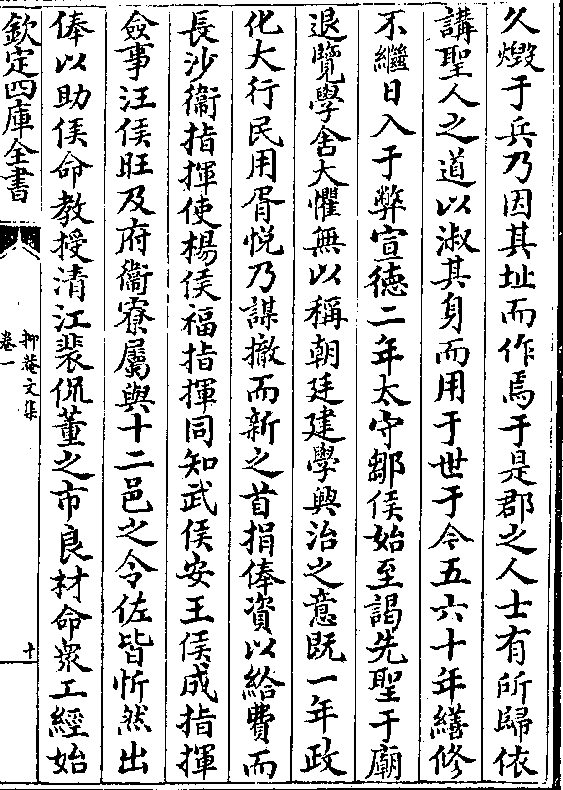 久燬于兵乃因其址而作焉于是郡之人士有所歸依
講聖人之道以淑其身而用于世于今五六十年繕修
不繼日入于弊宣德二年太守鄒侯始至謁先聖于廟
退覽學舍大懼無以稱朝廷建學興治之意既一年政
化大行民用胥悅乃謀撤而新之首捐俸資以給費而
長沙衞指揮使楊侯福指揮同知武侯安王侯成指揮
僉事汪侯旺及府衞寮屬與十二邑之令佐皆忻然出
俸以助侯命教授清江裴侃董之市良材命衆工經始
欽定四庫全書
抑菴文集
卷一
十